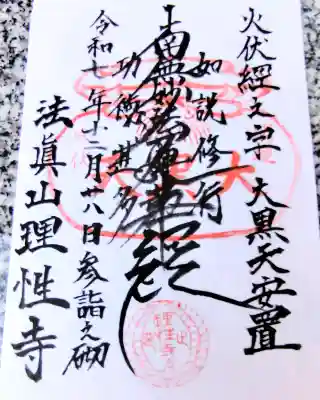 火伏經文字 大黒天安置
如説修行
南無妙法蓮華經
功徳甚多
令和七年十二月廿八日参詣之砌
法眞山理性寺